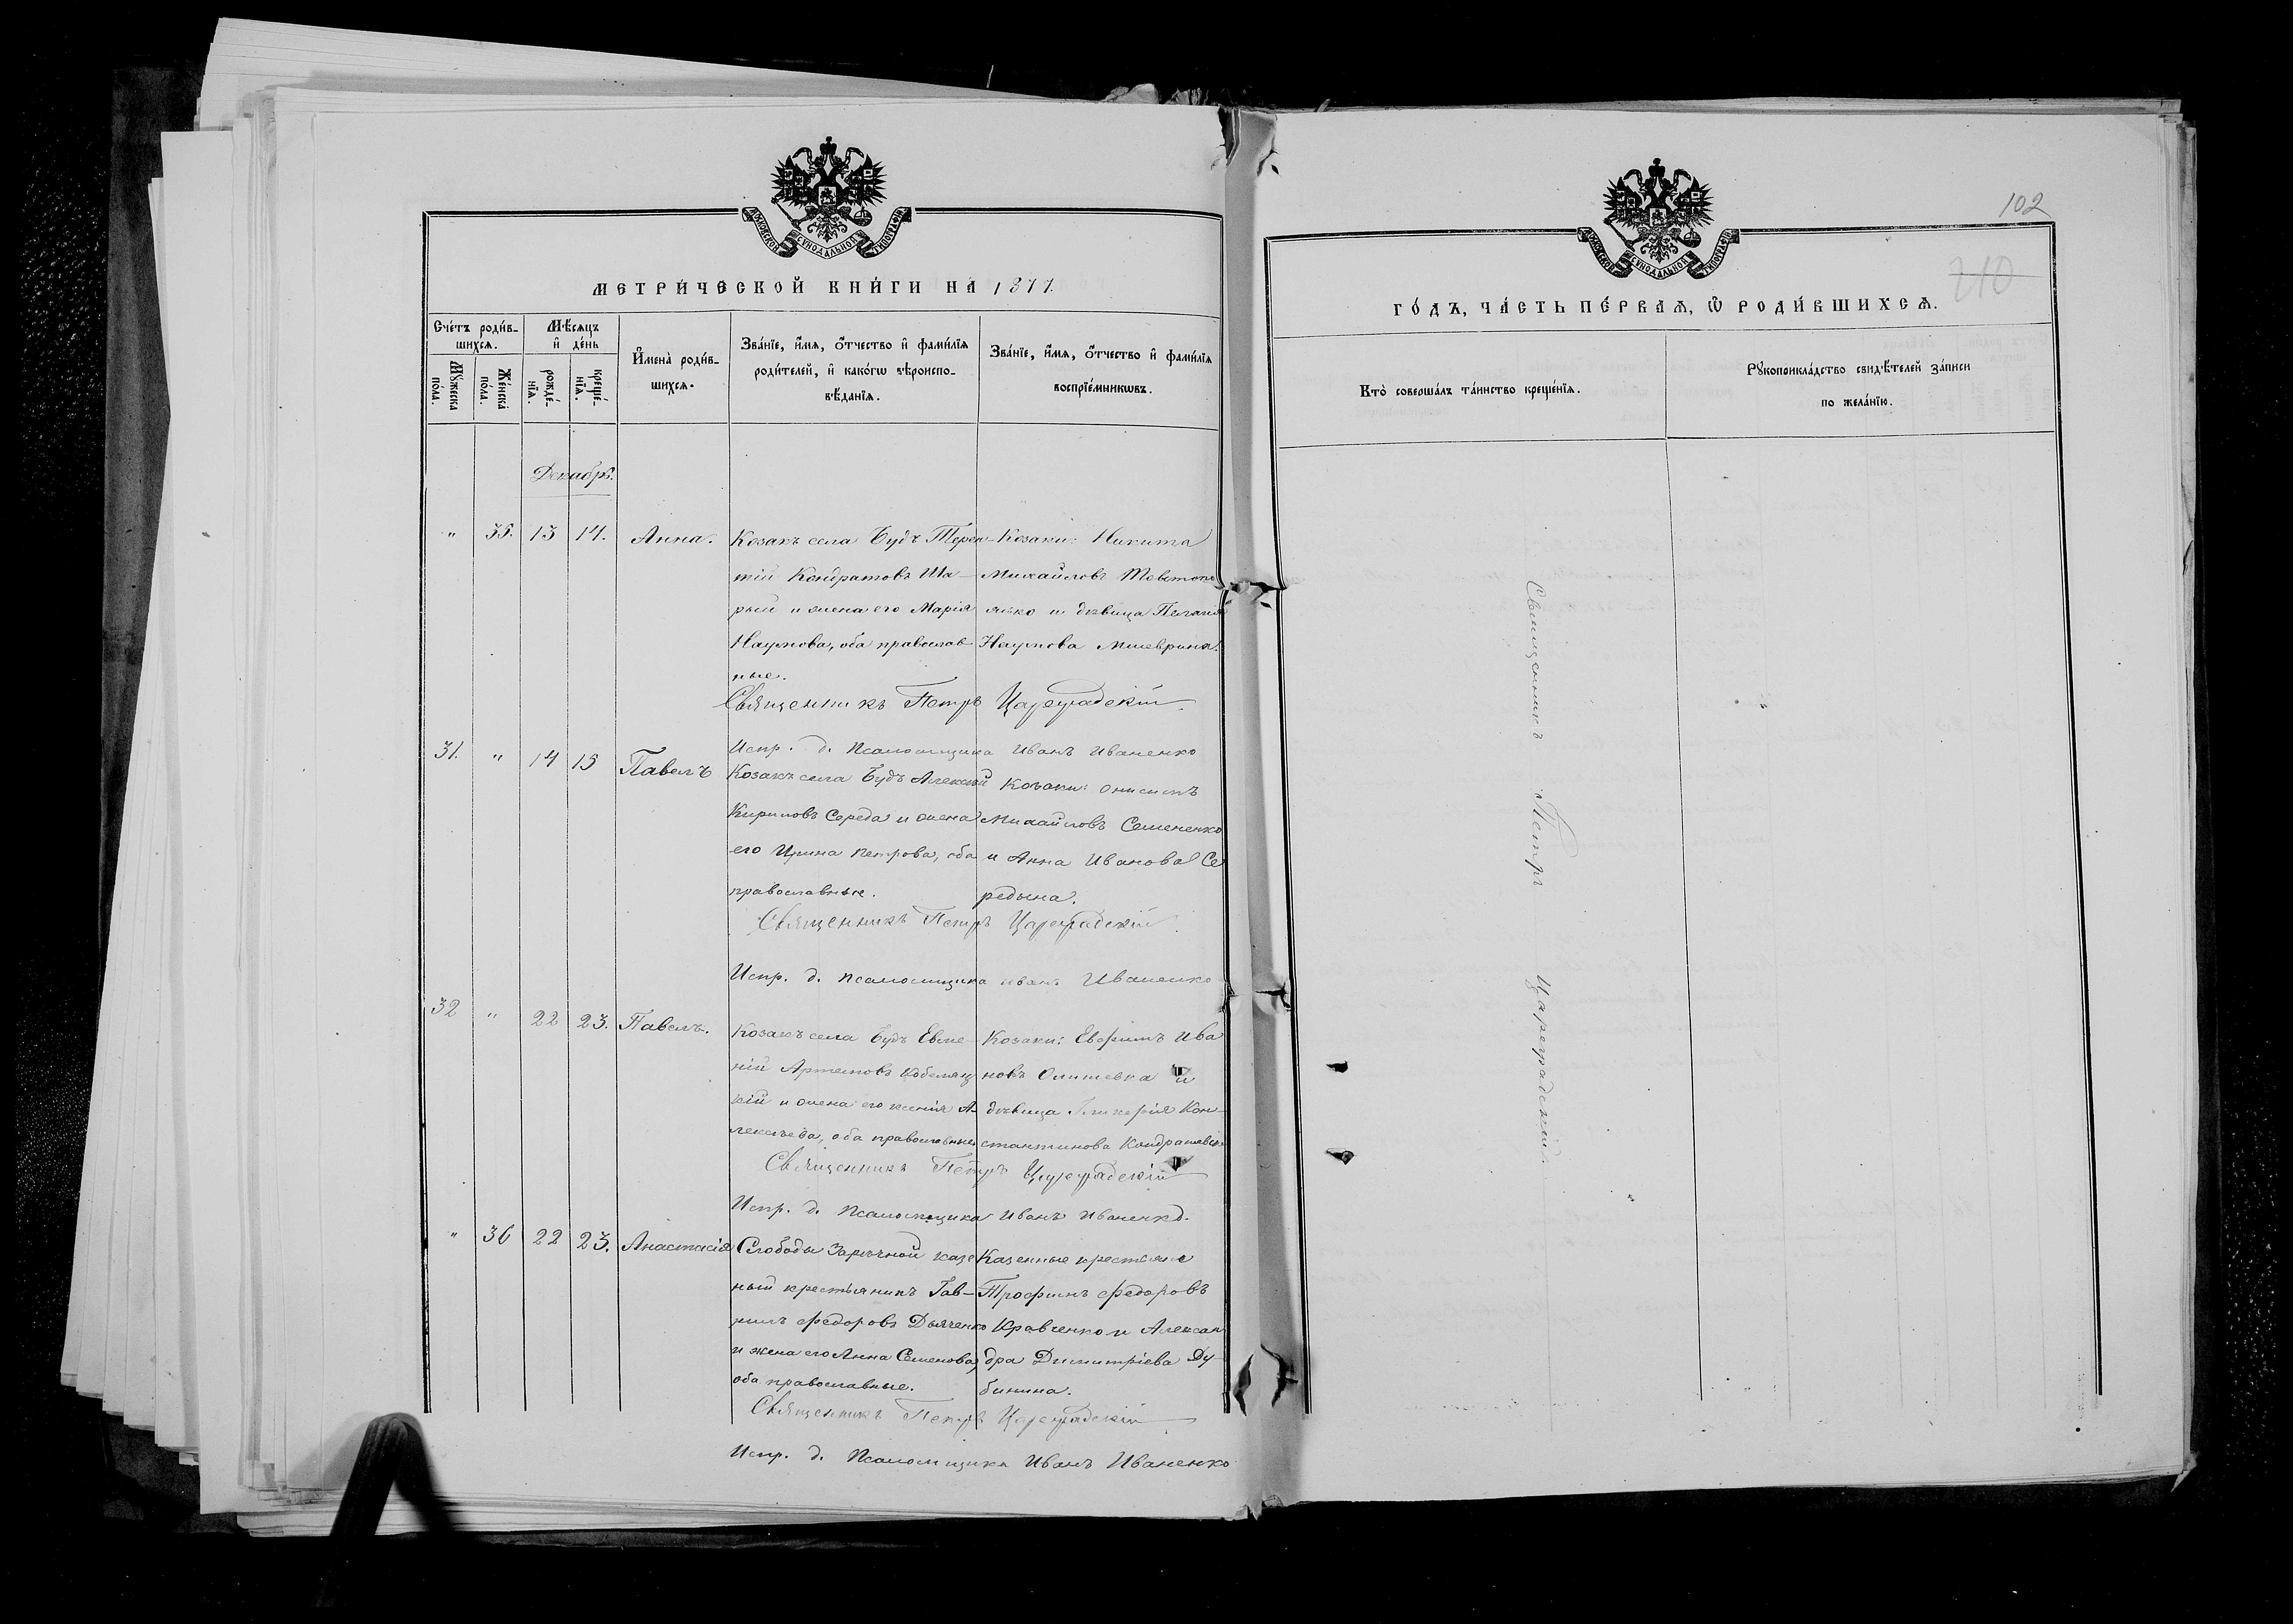 МОСКОВСКОЙ СѴНОДАЛЬНОЙ ТИПОГРАФІИ
МЕТРИ́ЧЕСКОЙ КНИ́ГИ НА 1877.
Сче́тъ роди́в-
шихсѧ.
Мѣ́сяцъ
и҆ де́нь
Мꙋ́жеска
по́ла.
Же́нска
по́ла.
рожде́-
нїѧ.
креще́-
нїѧ.
И҆мена̀ роди́в-
шихсѧ.
Зва́нїе, и҆́мѧ, ѻ҆́тчество и҆ фами́лїѧ
роди́телей, и҆ како́гѡ вѣроиспо-
вѣ́данїѧ.
Зва́нїе, и҆́мѧ, ѻ҆́тчество и҆ фами́лїѧ
воспрїе́мникѡвъ.
Декабрь.
" 35. 13 14. Анна.
Козакъ села Будъ Терен-
тій Кондратовъ Ша-
рый и жена его Марія
Наумова, оба православ-
ные.
Козаки: Никита
Михайловъ
и дѣвица Пелагія
Наумова
Священникъ Петръ Цареградскій
Испр. д. Псаломщика Иванъ Иваненко
31. " 14 15 Павелъ
Козакъ села Будъ Алексѣй
Кириловъ Середа и жена
его Ирина Петрова, оба
православные.
Козаки: Онисимъ
Михайловъ Семененко
и Анна Иванова Се
редына.
Священникъ Петръ Цареградскій
Испр. д. Псаломщика Иванъ Иваненко
32 " 22 23. Павелъ.
Козакъ села Будъ Евме-
ній Артемовъ Кобеляц
кій и жена его Ксенія А-
лексѣева, оба православные
Козаки: Евфимъ Ива
новъ и
дѣвица Гликерія Кон-
стантинова
Священникъ Петръ Цареградскій
Испр. д. Псаломщика Иванъ Иваненко.
" 36 22 23. Анастасія
Слободы Зарѣчной казе
ный крестьянинъ Гав-
рилъ Федоровъ Дьяченко
и жена его Анна Семенова,
оба православные.
Казенные крестьяне
Трофимъ Федоровъ
Кравченко и Алексан
дра Димитріева Ду-
бинина.
Священникъ Петръ Цареградскій
Испр. д. Псаломщика Иванъ Иваненко
102
210
МОСКОВСКОЙ СѴНОДАЛЬНОЙ ТИПОГРАФІИ
ГО́ДЪ, ЧА́СТЬ ПЕ́РВАѦ, Ѿ РОДИ́ВШИХСѦ.
Кто̀ соверша́лъ та́инство креще́нїѧ.
Рꙋкоприкла́дство свидѣ́телей за́писи
по жела́нїю.
Священникъ Петръ Цареградскій.